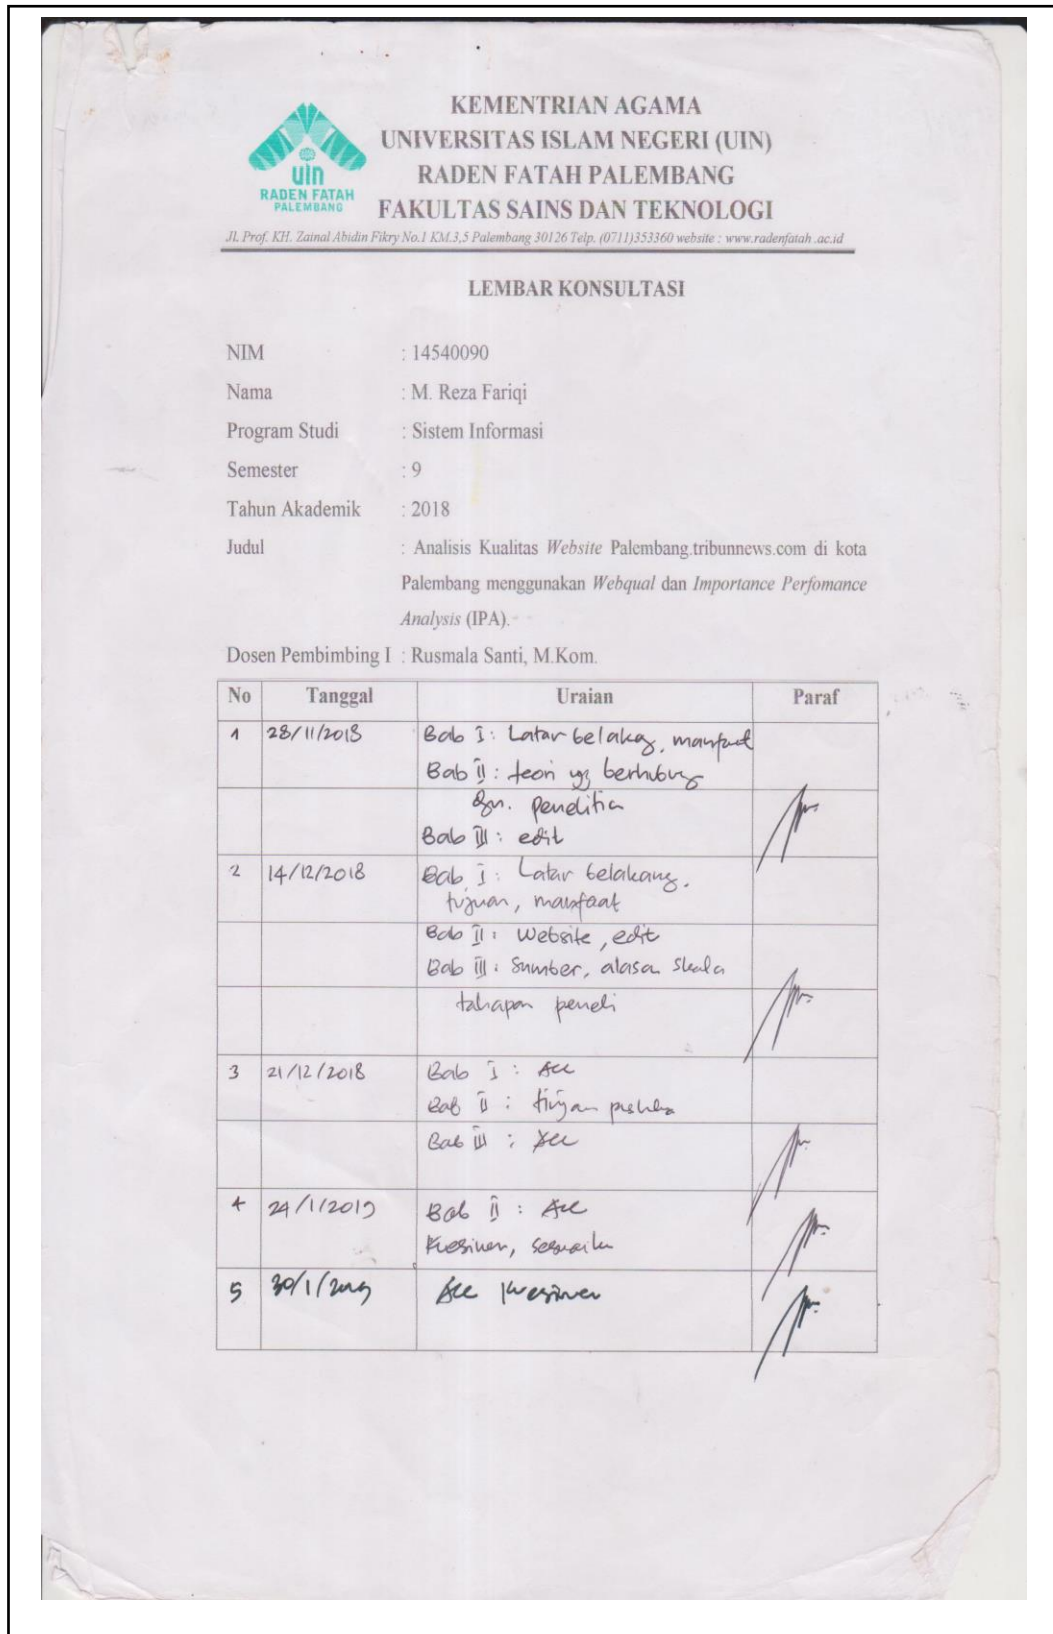 KEMENTRIAN AGAMA
UNIVERSITAS ISLAM NEGERI (UIN)
RADEN FATAH PALEMBANG
FAKULTAS SAINS DAN TEKNOLOGI
uin
RADEN FATAH
PALEMBANG
Jl. Prof. KH. Zainal Abidin Fikry No.1 KM.3,5 Palembang 30126 Telp. (0711)353360 website : www.radenfatah .ac.id
LEMBAR KONSULTASI
NIM : 14540090
Nama : M. Reza Fariqi
Program Studi : Sistem Informasi
Semester : 9
Tahun Akademik : 2018
Judul : Analisis Kualitas Website Palembang.tribunnews.com di kota
Palembang menggunakan Webqual dan Importance Perfomance
Analysis (IPA).
Dosen Pembimbing I : Rusmala Santi, M.Kom.
No Tanggal Uraian Paraf
1 28/11/2018 Bab I : Latar belakag, manfaat
Bab II : teori yg berhubung
dgn. penelitia
Bab III : edit
2 14/12/2018 Bab I : Latar belakang,
tujuan, manfaat
Bab II : Website, edit
Bab III : Sumber, alasan skala
tahapan peneli
3 21/12/2018 Bab I : Acc
Bab II : tinjan pustaka
Bab III : Acc
4 24/1/2019 Bab II : Acc
Kuesiner, sesuaika
5 30/1/2019 Acc Kuesioner